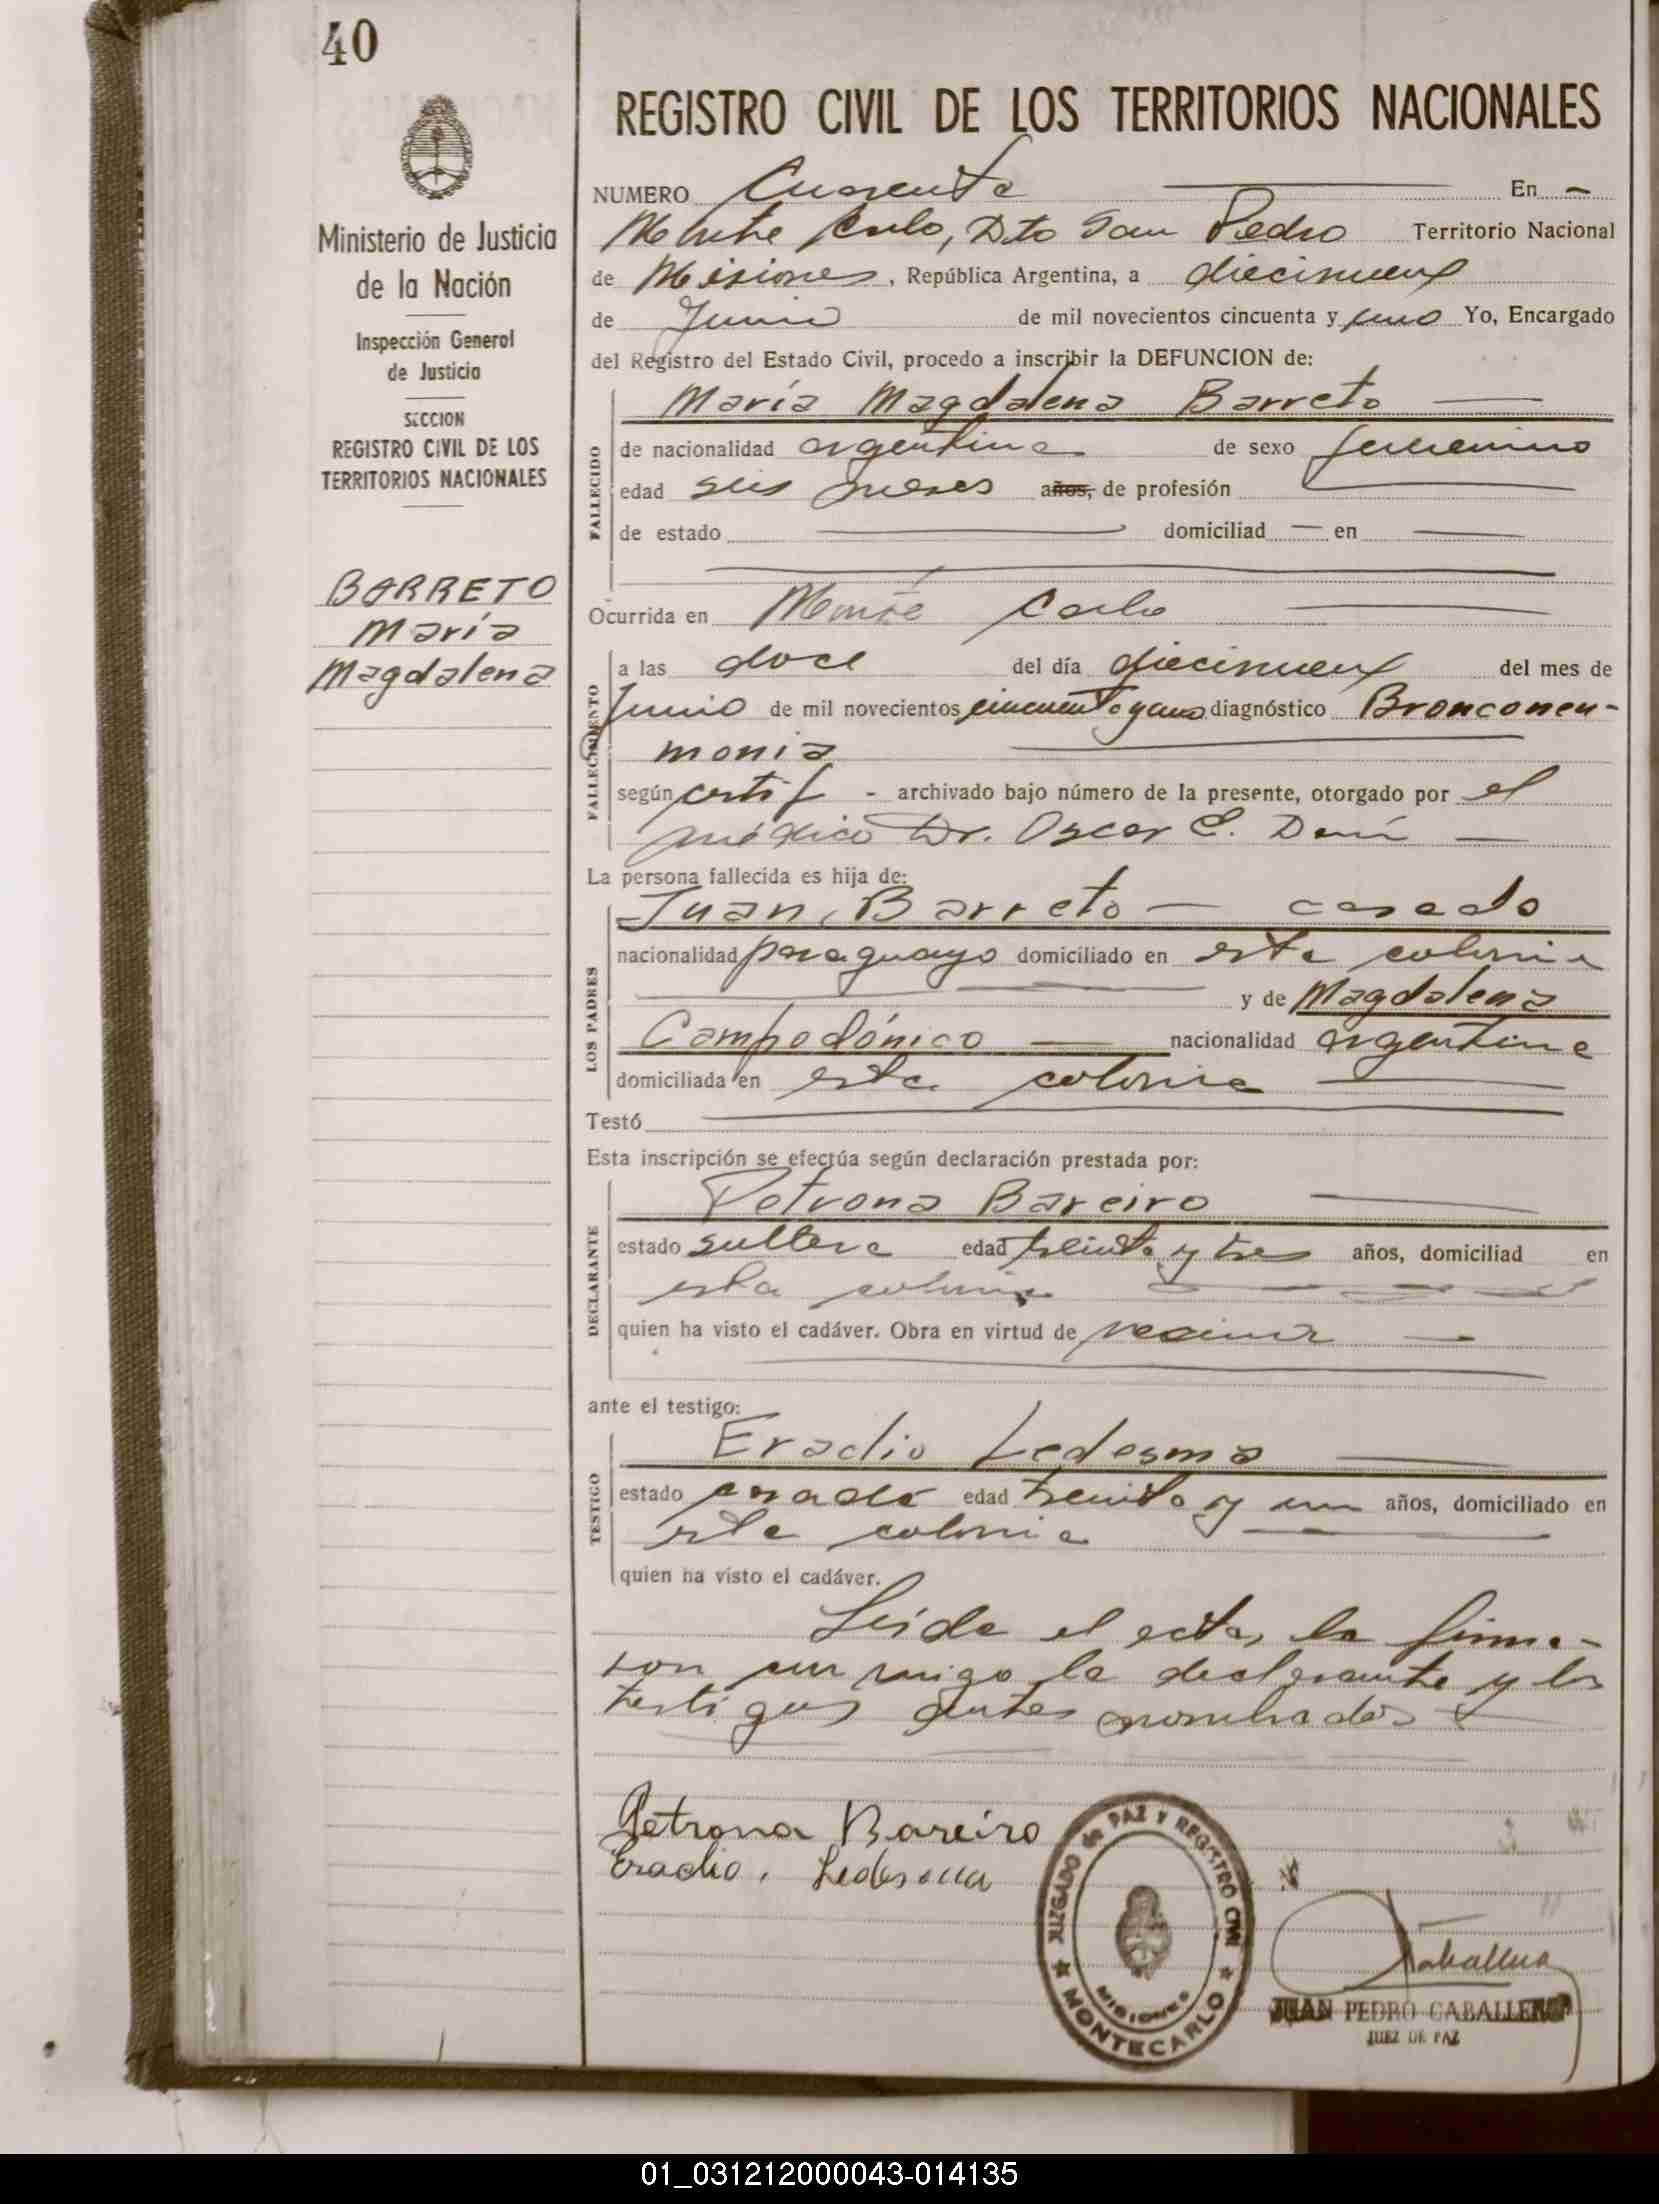 40
Ministerio de Justicia
de la Nación
Inspección General
de Justicia
SECCION
REGISTRO CIVIL DE LOS
TERRITORIOS NACIONALES
BARRETO
María
Magdalena
REGISTRO CIVIL DE LOS TERRITORIOS NACIONALES
NUMERO Cuarenta En
Monte Carlo, Dto San Pedro Territorio Nacional
de Misiones, República Argentina, a diecinueve
de Junio de mil novecientos cincuenta y uno Yo, Encargado
del Registro del Estado Civil, procedo a inscribir la DEFUNCION de:
FALLECIDO
María Magdalena Barreto
de nacionalidad argentina de sexo femenino
edad seis meses años, de profesión
de estado domiciliad en
Ocurrida en Monte Carlo
FALLECIMIENTO
a las doce del día diecinueve del mes de
Junio de mil novecientos cincuenta y uno diagnóstico Bronconeu-
monia
según certif - archivado bajo número de la presente, otorgado por el
médico Dr. Oscar E.
La persona fallecida es hija de:
LOS PADRES
Juan Barreto - casado
nacionalidad paraguayo domiciliado en esta colonia
y de Magdalena
Campodónico nacionalidad argentina
domiciliada en esta colonia
Testó
Esta inscripción se efectúa según declaración prestada por:
DECLARANTE
Petrona Bareiro
estado soltera edad treinta y tres años, domiciliad en
esta colonia
quien ha visto el cadáver. Obra en virtud de
ante el testigo:
TESTIGO
Eradio Ledesma
estado casado edad treinta y un años, domiciliado en
esta colonia
quien ha visto el cadáver.
Leida el acta, la firma-
ron conmigo la declarante y los
testigos antes nombrados
Petrona Bareiro
Eradio. Ledesma
JUZGADO de PAZ Y REGISTRO CIVIL
MISIONES
MONTECARLO
Caballero
JUAN PEDRO CABALLERO
JUEZ DE PAZ
01_031212000043-014135